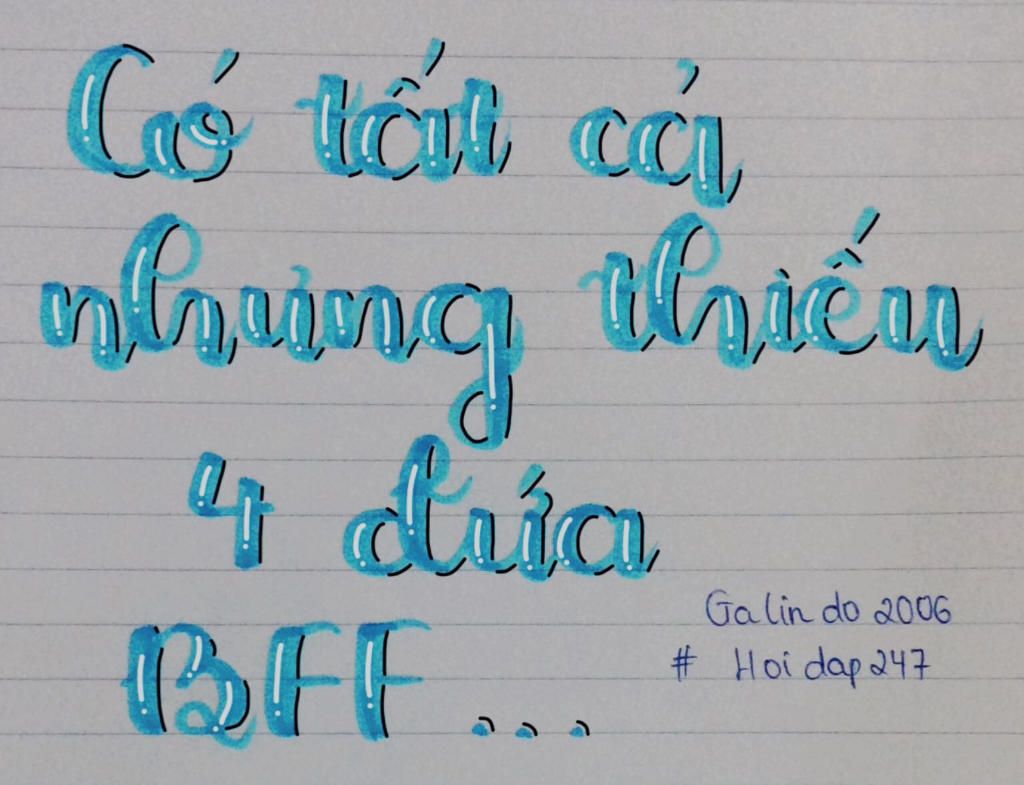 Có tất cả
nhưng thiếu
4 đứa
BFF...
Galindo 2006
# Hoidap247